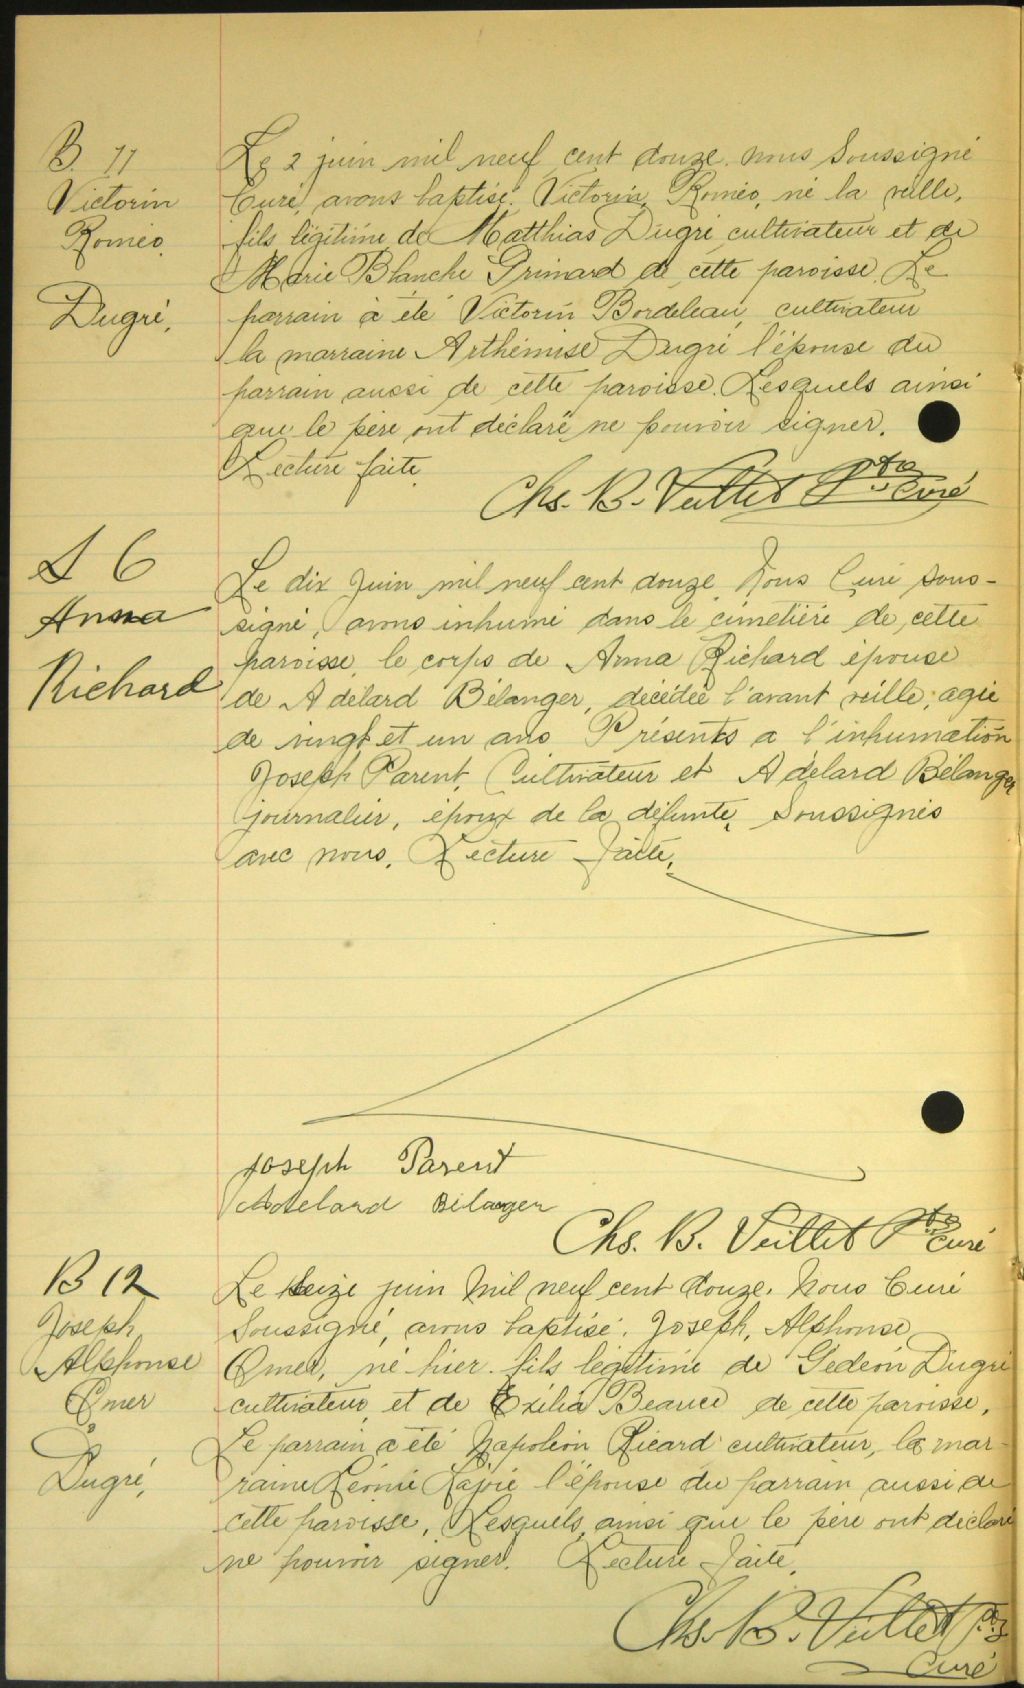 B. 11
Victorin
Roméo
Dugré,
Le 2 juin mil neuf cent douze nous Soussigné
Curé, avons baptisé. Victorin, Roméo, né la veille,
fils légitime de Matthias Dugré cultivateur et de
Marie Blanche Grimard de cette paroisse. Le
parrain à été Victorin Bordeleau, cultivateur
la marraine Arthémise Dugré l'épouse du
parrain aussi de cette paroisse. Lesquels ainsi
que le père ont déclaré ne pouvoir signer.
Lecture faite.
Chs. B. Veillet Ptre curé
S 6
Anna
Richard
Le dix Juin mil neuf cent douze, Nous Curé sous-
signé, avons inhumé dans le cimetière de cette
paroisse le corps de Anna Richard épouse
de Adélard Bélanger, décédée l'avant veille, agée
de vingt et un ans Présents a l'inhumation
Joseph Parent, Cultivateur et Adélard Bélanger
journalier, époux de la défunte, Soussignés
avec nous. Lecture faite.
Joseph Parent
Adelard Bélanger
Chs. B. Veillet Ptre curé
B 12
Joseph
Alphonse
Omer
Dugré,
Le seize juin Mil neuf cent douze. Nous Curé
Soussigné, avons baptisé. Joseph, Alphonse
Omer, né hier fils légitime de Gédeón Dugré
cultivateur, et de Exilia Beauce de cette paroisse.
Le parrain a été Napoléon Ricard cultivateur, la mar-
raine Léonie Lajoie l'épouse du parrain aussi de
cette paroisse, Lesquels, ainsi que le père ont declaré
ne pouvoir signer. Lecture faite.
Chs. B. Veillet Ptre
curé